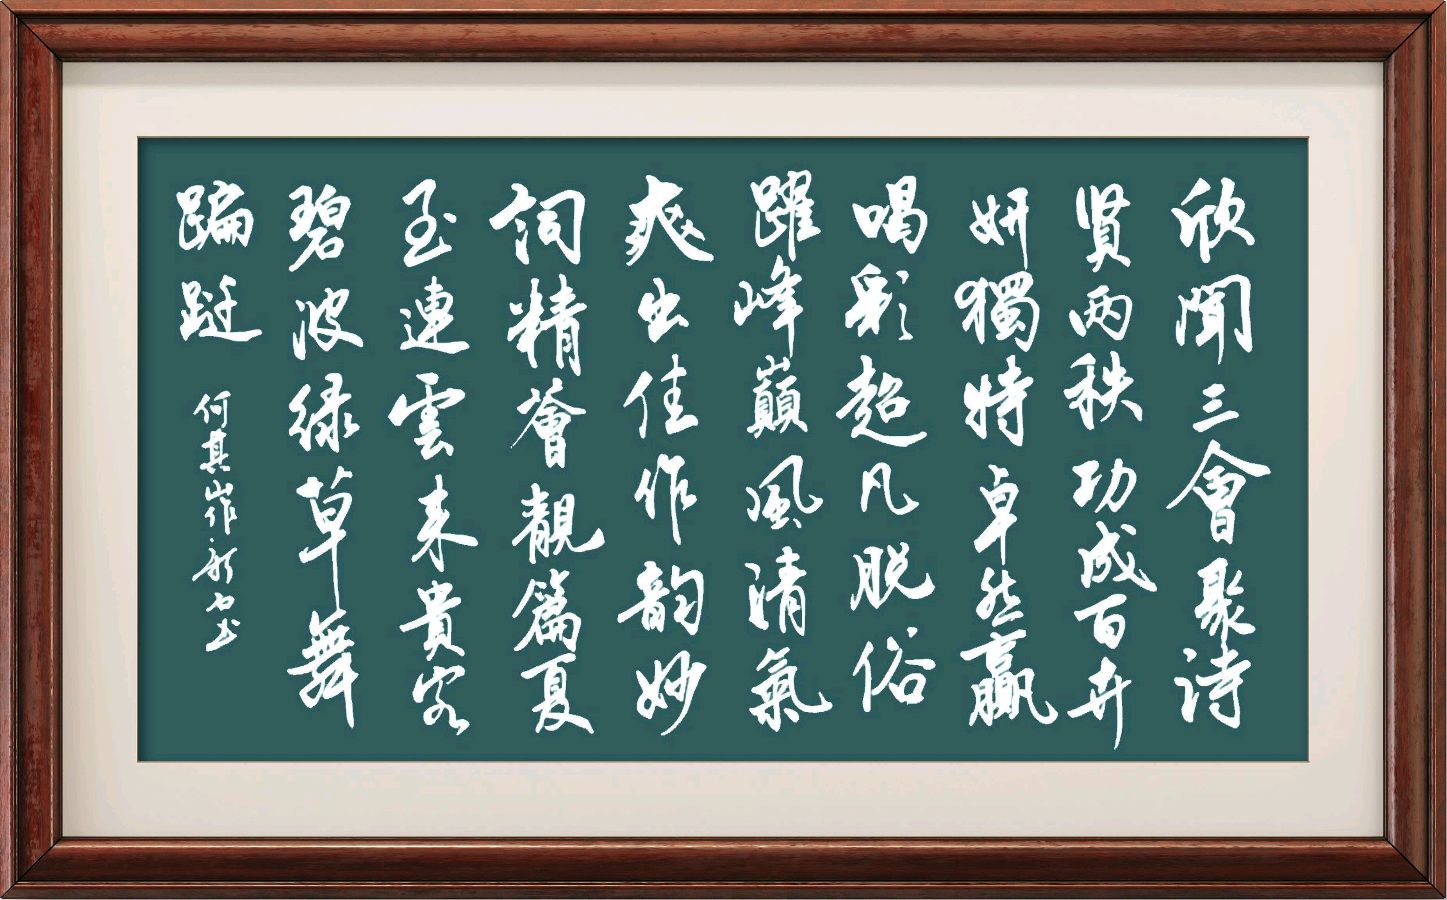 欣聞三會聚詩
贤两秩功成百卉
妍獨特卓然赢
喝彩超凡脱俗
躍峰巔風清氣
爽出佳作韵妙
詞精薈靚篇夏
至連雲来貴客
碧波绿草舞
蹁跹
何其山作 书